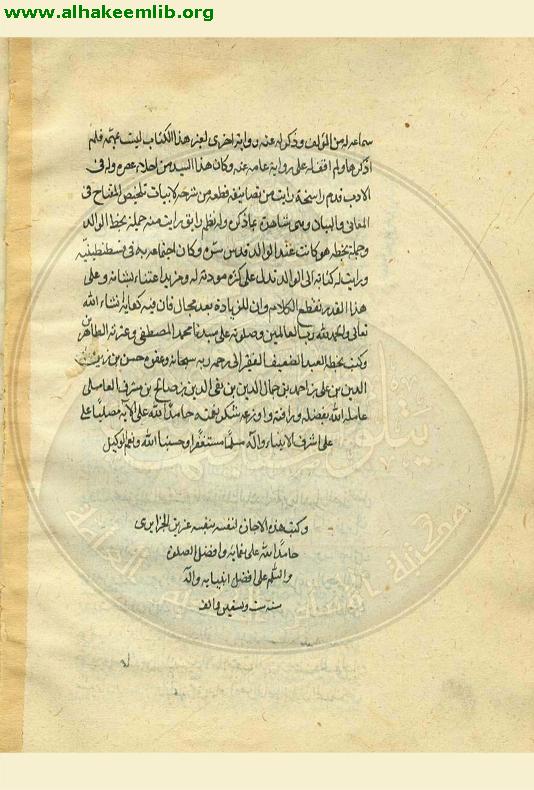 www.alhakeemlib.org
سماعه له من المؤلف وذكر له عنه رواية اخرى لغير هذا الكتاب ليت بهمته فلم
اذكرها ولم اقف له على رواية عامه عنه وكان هذا السيد من اجلاء عصره وله في
الادب قدم راسخة رايت من تصانيفه قطعه من شرحه لابيات تلخيص المفتاح في
المعاني والبيان وهي شاهدة بما ذكر وله نظم رايق رايت منه جملة بخط الوالد
وجملة بخطه هو كانت عند الوالد قدس سره وكان اجتماعه به في قسطنطينيه
ورايت له كتابه الى الوالد تدل على كثرة مودته له ومزيد اعتناء بشانه وعلى
هذا القدر نقطع الكلام وان للزيادة بعد مجال فان فيه كفاية ان شاء الله
تعالى والحمد لله رب العالمين وصلوته على سيدنا محمد المصطفى وعترته الطاهرين
وكتب بخطه العبد الضعيف الفقير الى رحمة ربه سبحانه وعفوه حسن بن زين
الدين بن علي بن احمد بن جمال الدين بن تقي الدين بن صالح بن مشرف العاملي
عامله الله بفضله ورافته واوزعه شكر نعمته حامدا لله على الآئه مصليا على
على اشرف الانبياء وآله مسلما مستغفرا وحسبنا الله ونعم الوكيل
وكتب هذه الاجازة لنفسه بنفسه عز بن الجزايري
حامدا لله على نعمائه وافضل الصلوة
والسلم على افضل انبيايه وآله
سنه ست وتسعين والف